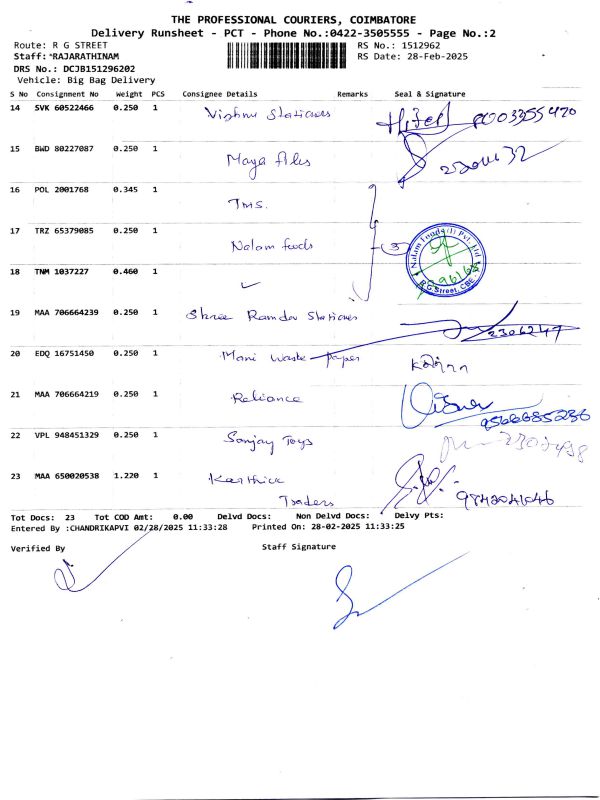 THE PROFESSIONAL COURIERS, COIMBATORE
Delivery Runsheet - PCT - Phone No.:0422-3505555 - Page No.:2
Route: R G STREET RS No.: 1512962
Staff: *RAJARATHINAM RS Date: 28-Feb-2025
DRS No.: DCJB151296202
Vehicle: Big Bag Delivery
S No Consignment No Weight PCS Consignee Details Remarks Seal & Signature
14 SVK 60522466 0.250 1 Vishnu Stationers
15 BWD 80227087 0.250 1 Maya files
16 POL 2001768 0.345 1 TMS.
17 TRZ 65379085 0.250 1 Nalam foods 3 Nalam Foods (I) Pvt. Ltd R G Street, CBE
18 TNM 1037227 0.460 1 ✓
19 MAA 706664239 0.250 1 Shree Ramdev Stationers 2306247
20 EDQ 16751450 0.250 1 Mani Waste paper
21 MAA 706664219 0.250 1 Reliance 9566685236
22 VPL 948451329 0.250 1 Sanjay Toys
23 MAA 650020538 1.220 1 Karthick Traders 9842041046
Tot Docs: 23 Tot COD Amt: 0.00 Delvd Docs: Non Delvd Docs: Delvy Pts:
Entered By :CHANDRIKAPVI 02/28/2025 11:33:28 Printed On: 28-02-2025 11:33:25
Verified By Staff Signature